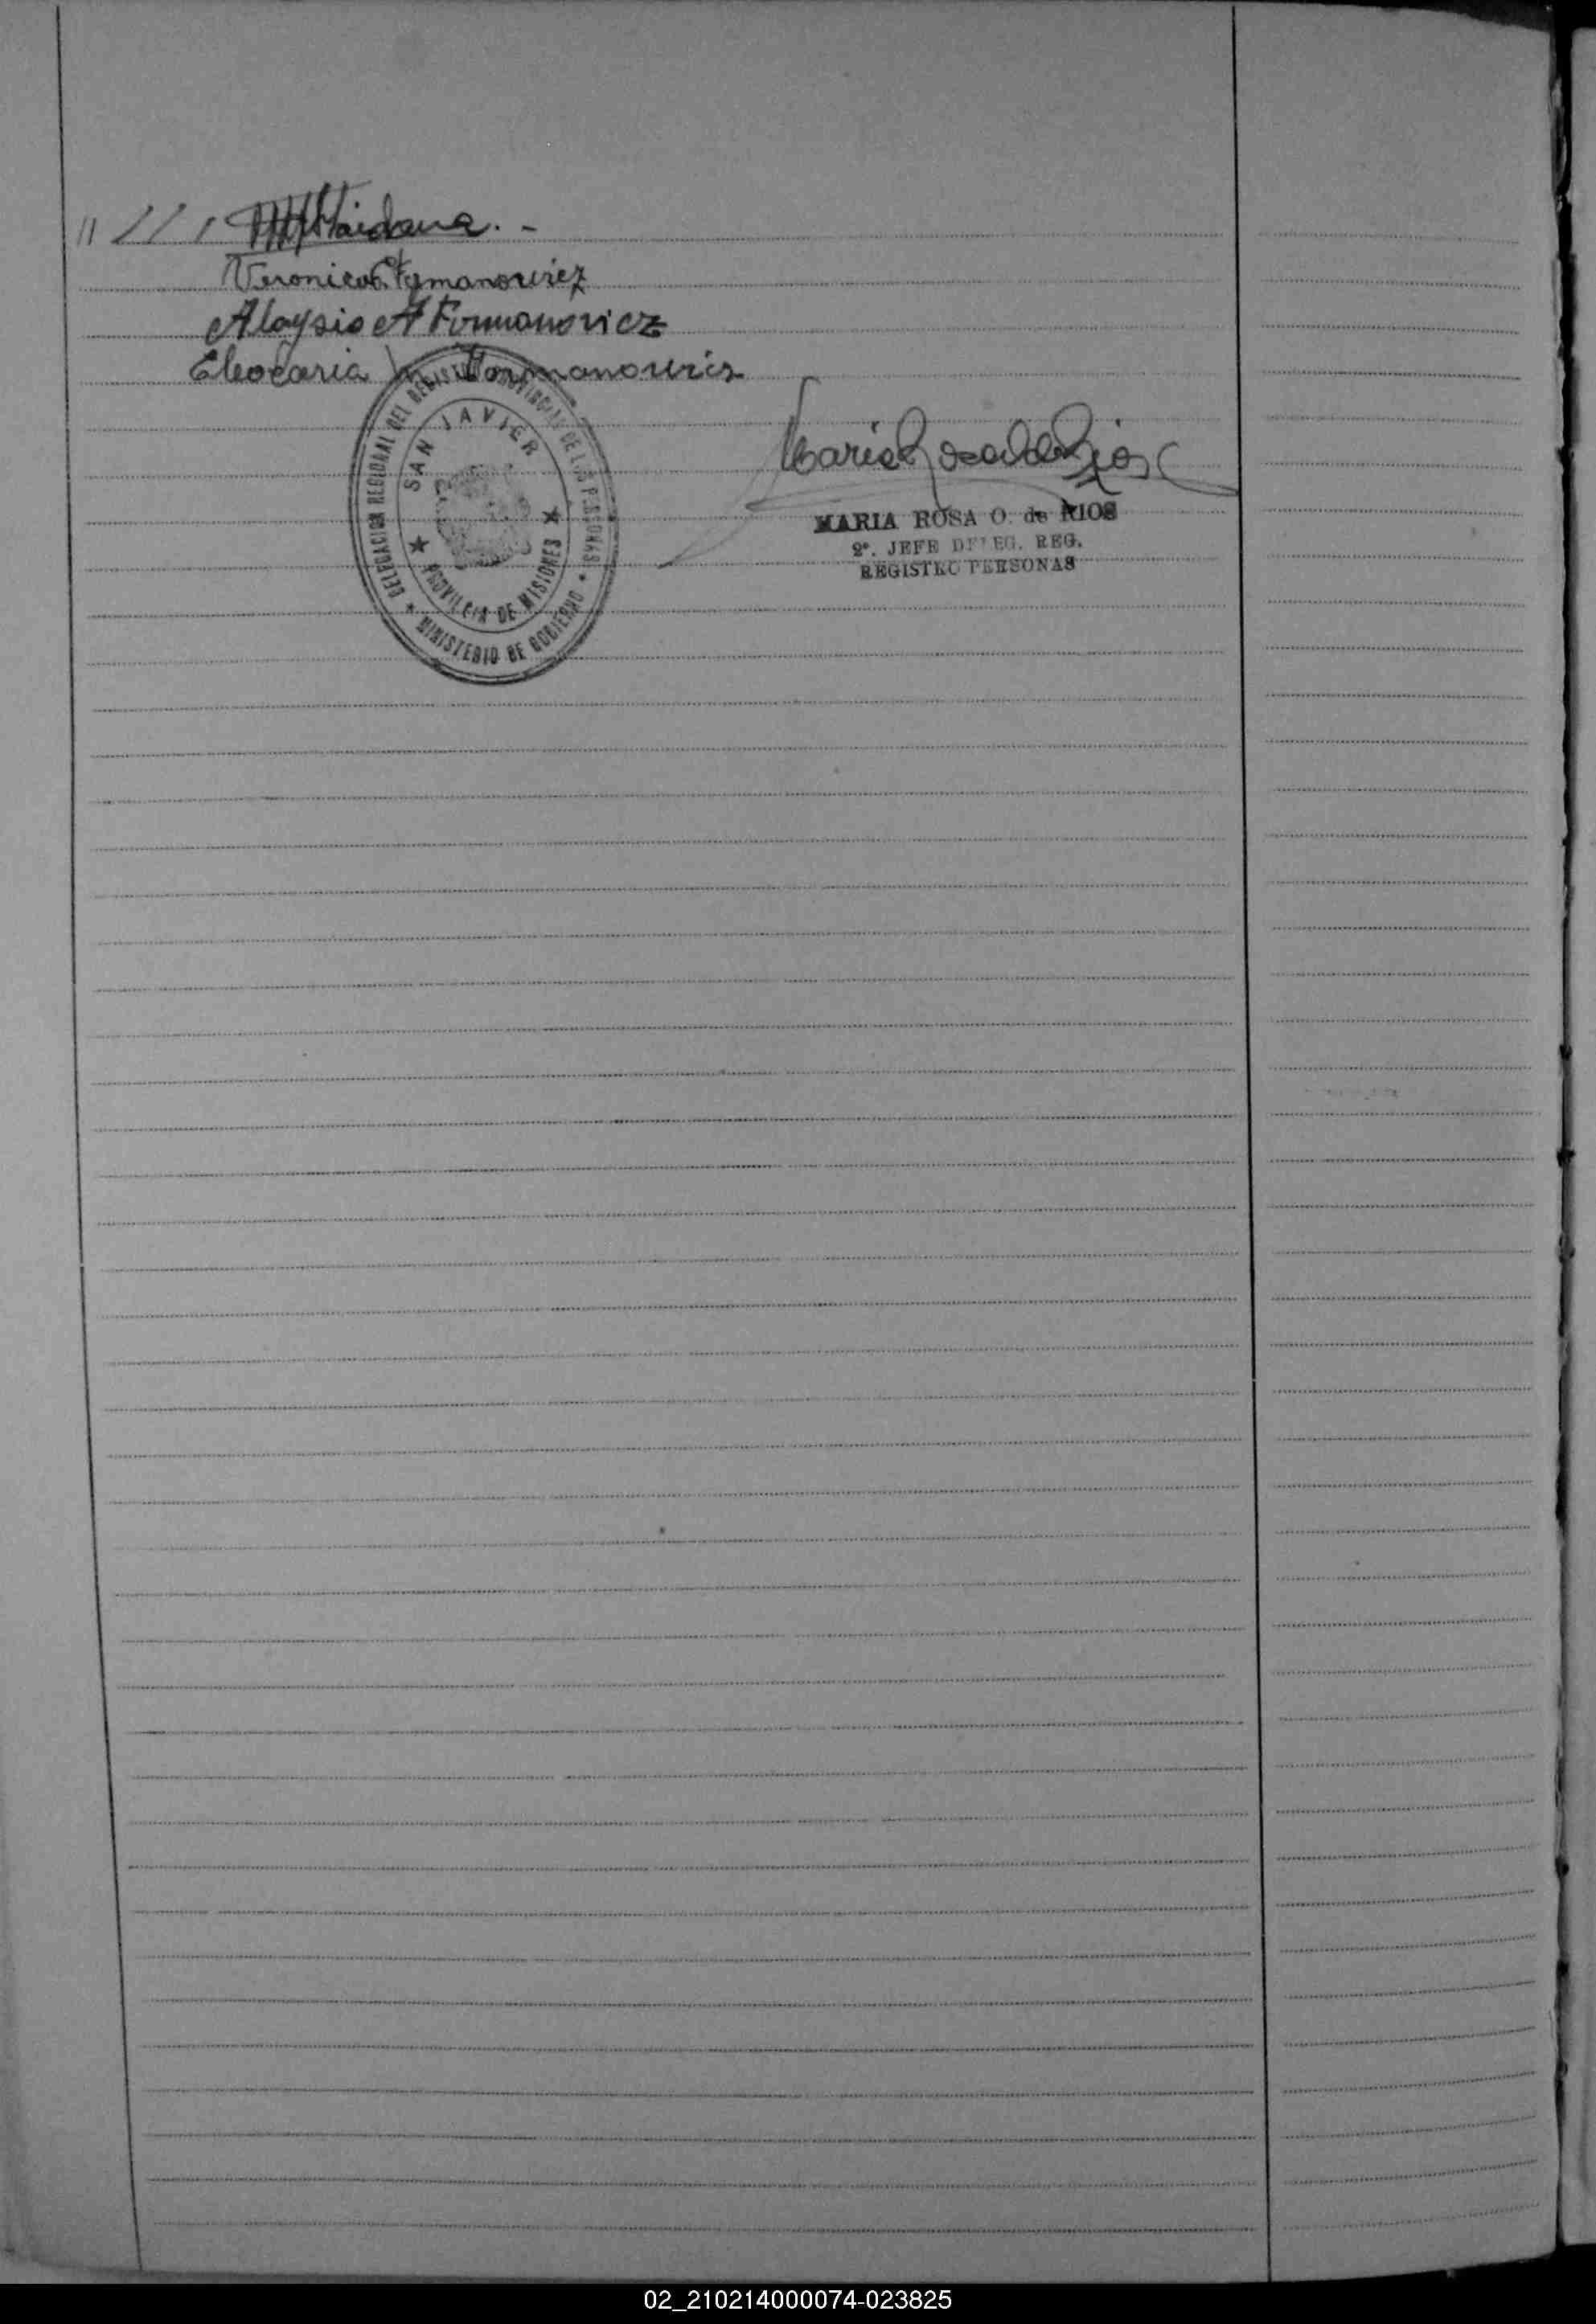 // // / Maidana. -
Veronica Fymanowicz
Aloysio A Formanovicz
Formanowicz
DELEGACION REGIONAL DEL REGISTRO PROVINCIAL DE LAS PERSONAS
SAN JAVIER
PROVINCIA DE MISIONES
MINISTERIO DE GOBIERNO
Maria Rosa O de Rios
MARIA ROSA O. de RIOS
2º. JEFE DELEG. REG.
REGISTRO PERSONAS
02_210214000074-023825